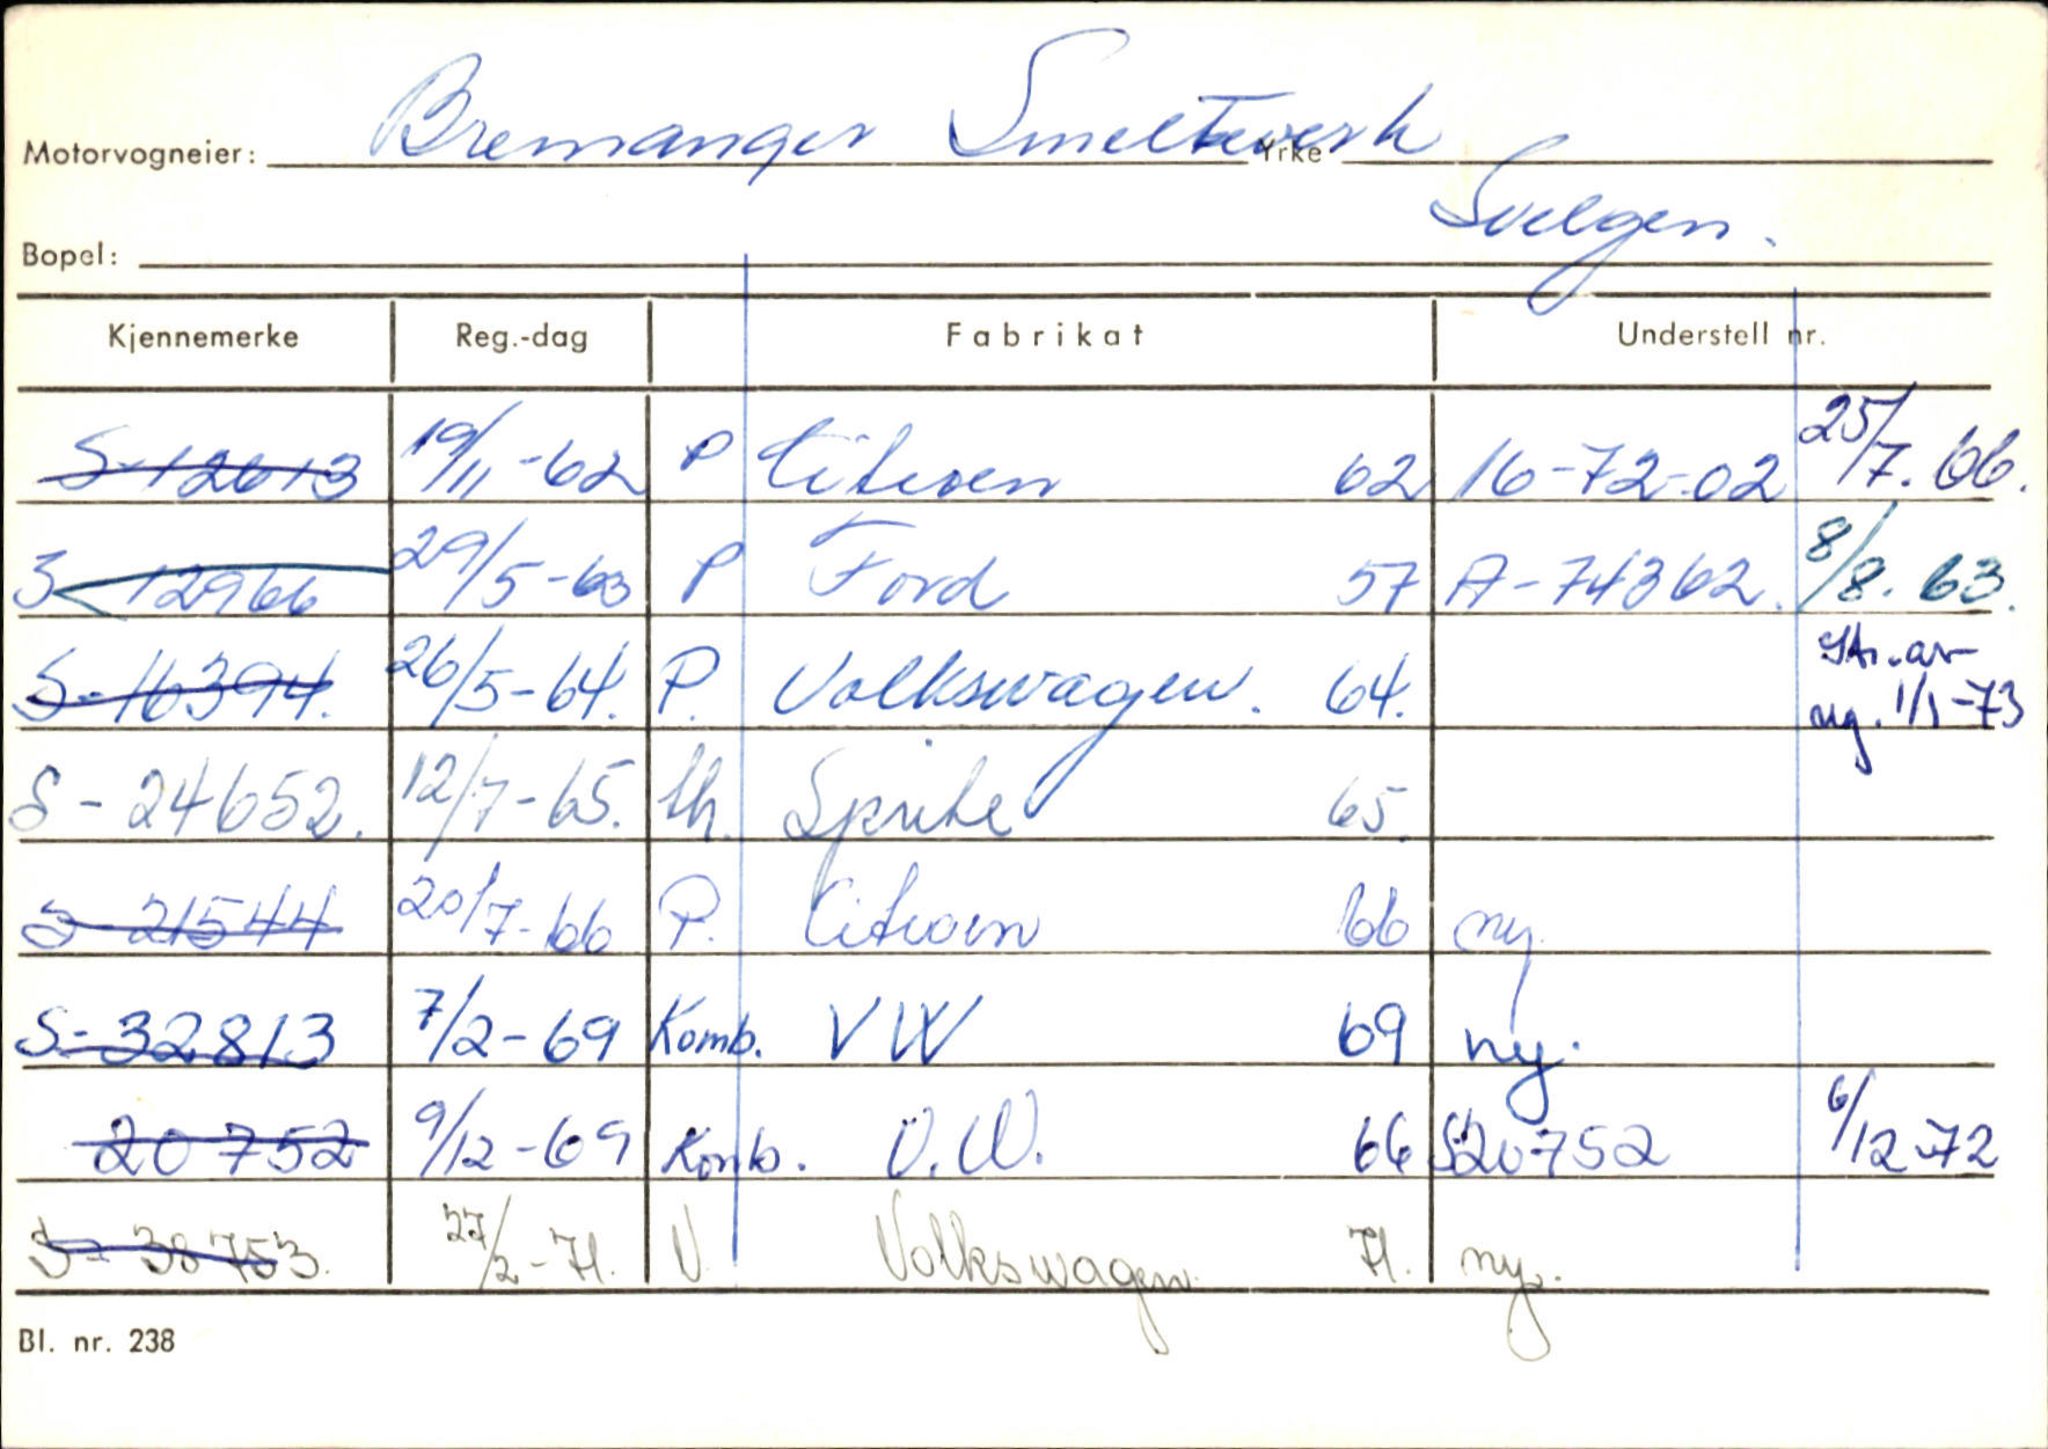 Motorvogneier: Bremanger Smelteverk Yrke
Bopel: Svelgen.
Kjennemerke Reg.-dag Fabrikat Understell nr.
S-12613 19/11-62 P Citroen 62 16-72-02 25/7.66.
S 12966 29/5-63 P Ford 57 A-74362. 8/8.63.
S-16394. 26/5-64. P. Volkswagen. 64. Str. av
reg. 1/1-73
S-24652. 12/7-65. th. Sprite 65.
S-21544 20/7-66 P. Citroen 66 ny
S-32813 7/2-69 Komb. VW 69 ny.
20752 9/12-69 Komb. V.W. 66 S20752 6/12-72
S-38753. 27/2-71. V. Volkswagen 71. ny.
Bl. nr. 238